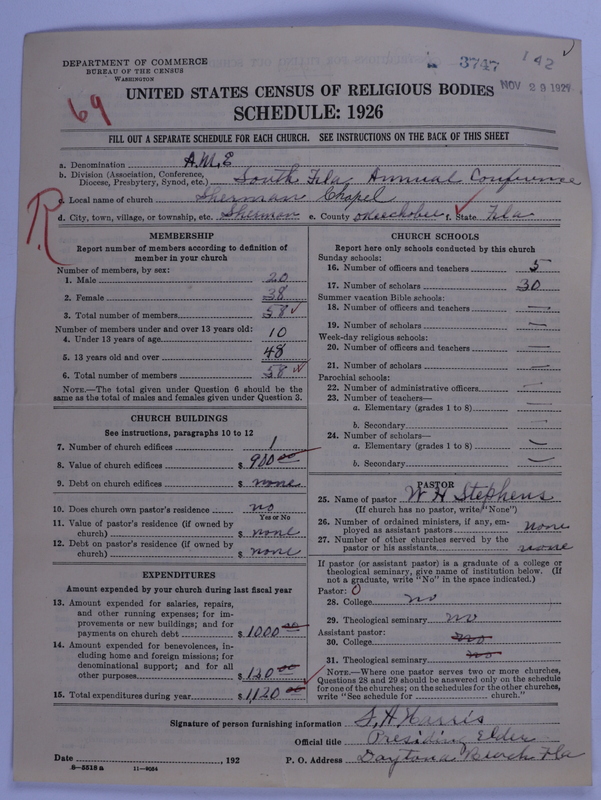 DEPARTMENT OF COMMERCE
BUREAU OF THE CENSUS
WASHINGTON
3747
142
NOV 29 1927
69
UNITED STATES CENSUS OF RELIGIOUS BODIES
SCHEDULE: 1926
FILL OUT A SEPARATE SCHEDULE FOR EACH CHURCH. SEE INSTRUCTIONS ON THE BACK OF THIS SHEET
R
a. Denomination A.M.E
b. Division (Association, Conference, Diocese, Presbytery, Synod, etc.) South Fla Annual Conference
c. Local name of church Sherman Chapel
d. City, town, village, or township, etc. Sherman e. County Okeechobee f. State Fla
MEMBERSHIP
Report number of members according to definition of
member in your church
Number of members, by sex:
1. Male 20
2. Female 38
3. Total number of members 58
Number of members under and over 13 years old:
4. Under 13 years of age 10
5. 13 years old and over 48
6. Total number of members 58
NOTE.—The total given under Question 6 should be
same as the total of males and females given under Question 3.
CHURCH BUILDINGS
See instructions, paragraphs 10 to 12
7. Number of church edifices 1
8. Value of church edifices $ 900 00
9. Debt on church edifices $ none
10. Does church own pastor's residence no
Yes or No
11. Value of pastor's residence (if owned by
church) $ none
12. Debt on pastor's residence (if owned by
church) $ none
EXPENDITURES
Amount expended by your church during last fiscal year
13. Amount expended for salaries, repairs,
and other running expenses; for im-
provements or new buildings; and for
payments on church debt $ 1000 00
14. Amount expended for benevolences, in-
cluding home and foreign missions; for
denominational support; and for all
other purposes $ 120 00
15. Total expenditures during year $ 1,120 00
CHURCH SCHOOLS
Report here only schools conducted by this church
Sunday schools:
16. Number of officers and teachers 5
17. Number of scholars 30
Summer vacation Bible schools:
18. Number of officers and teachers —
19. Number of scholars —
Week-day religious schools:
20. Number of officers and teachers —
21. Number of scholars —
Parochial schools:
22. Number of administrative officers —
23. Number of teachers—
a. Elementary (grades 1 to 8) —
b. Secondary —
24. Number of scholars—
a. Elementary (grades 1 to 8) —
b. Secondary —
PASTOR
25. Name of pastor W H Stephens
(If church has no pastor, write "None")
26. Number of ordained ministers, if any, em-
ployed as assistant pastors none
27. Number of other churches served by the
pastor or his assistants none
If pastor (or assistant pastor) is a graduate of a college or
theological seminary, give name of institution below. (If
not a graduate, write "No" in the space indicated.)
Pastor: 0
28. College no
29. Theological seminary no
Assistant pastor:
30. College no
31. Theological seminary no
NOTE.—Where one pastor serves two or more churches,
Questions 28 and 29 should be answered only on the schedule
for one of the churches; on the schedules for the other churches,
write "See schedule for church."
Signature of person furnishing information S. A. Harris
Official title Presiding Elder
Date , 192 P. O. Address Daytona Beach Fla
8-5318 a 11-9034